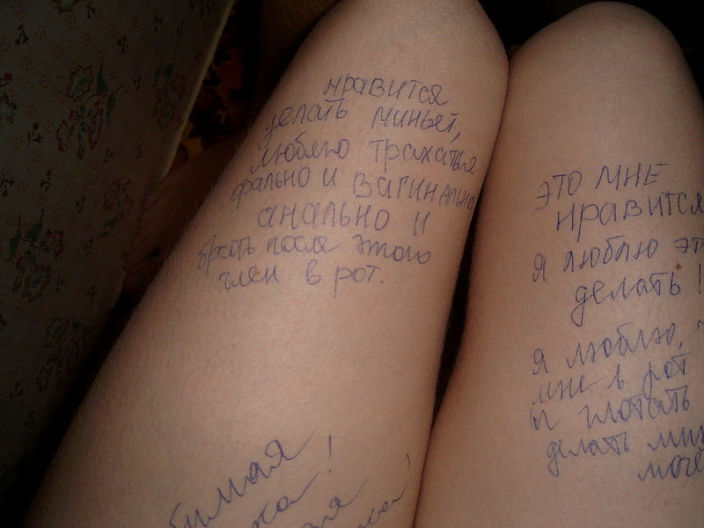 нравится
делать миньет,
люблю трахаться
орально и вагинально
анально и
брать после этого
член в рот.
бимая
!
ая
!
это мне
нравится
я люблю эт
делать !
я люблю, ч
мне в рот
и глотать
делать мин